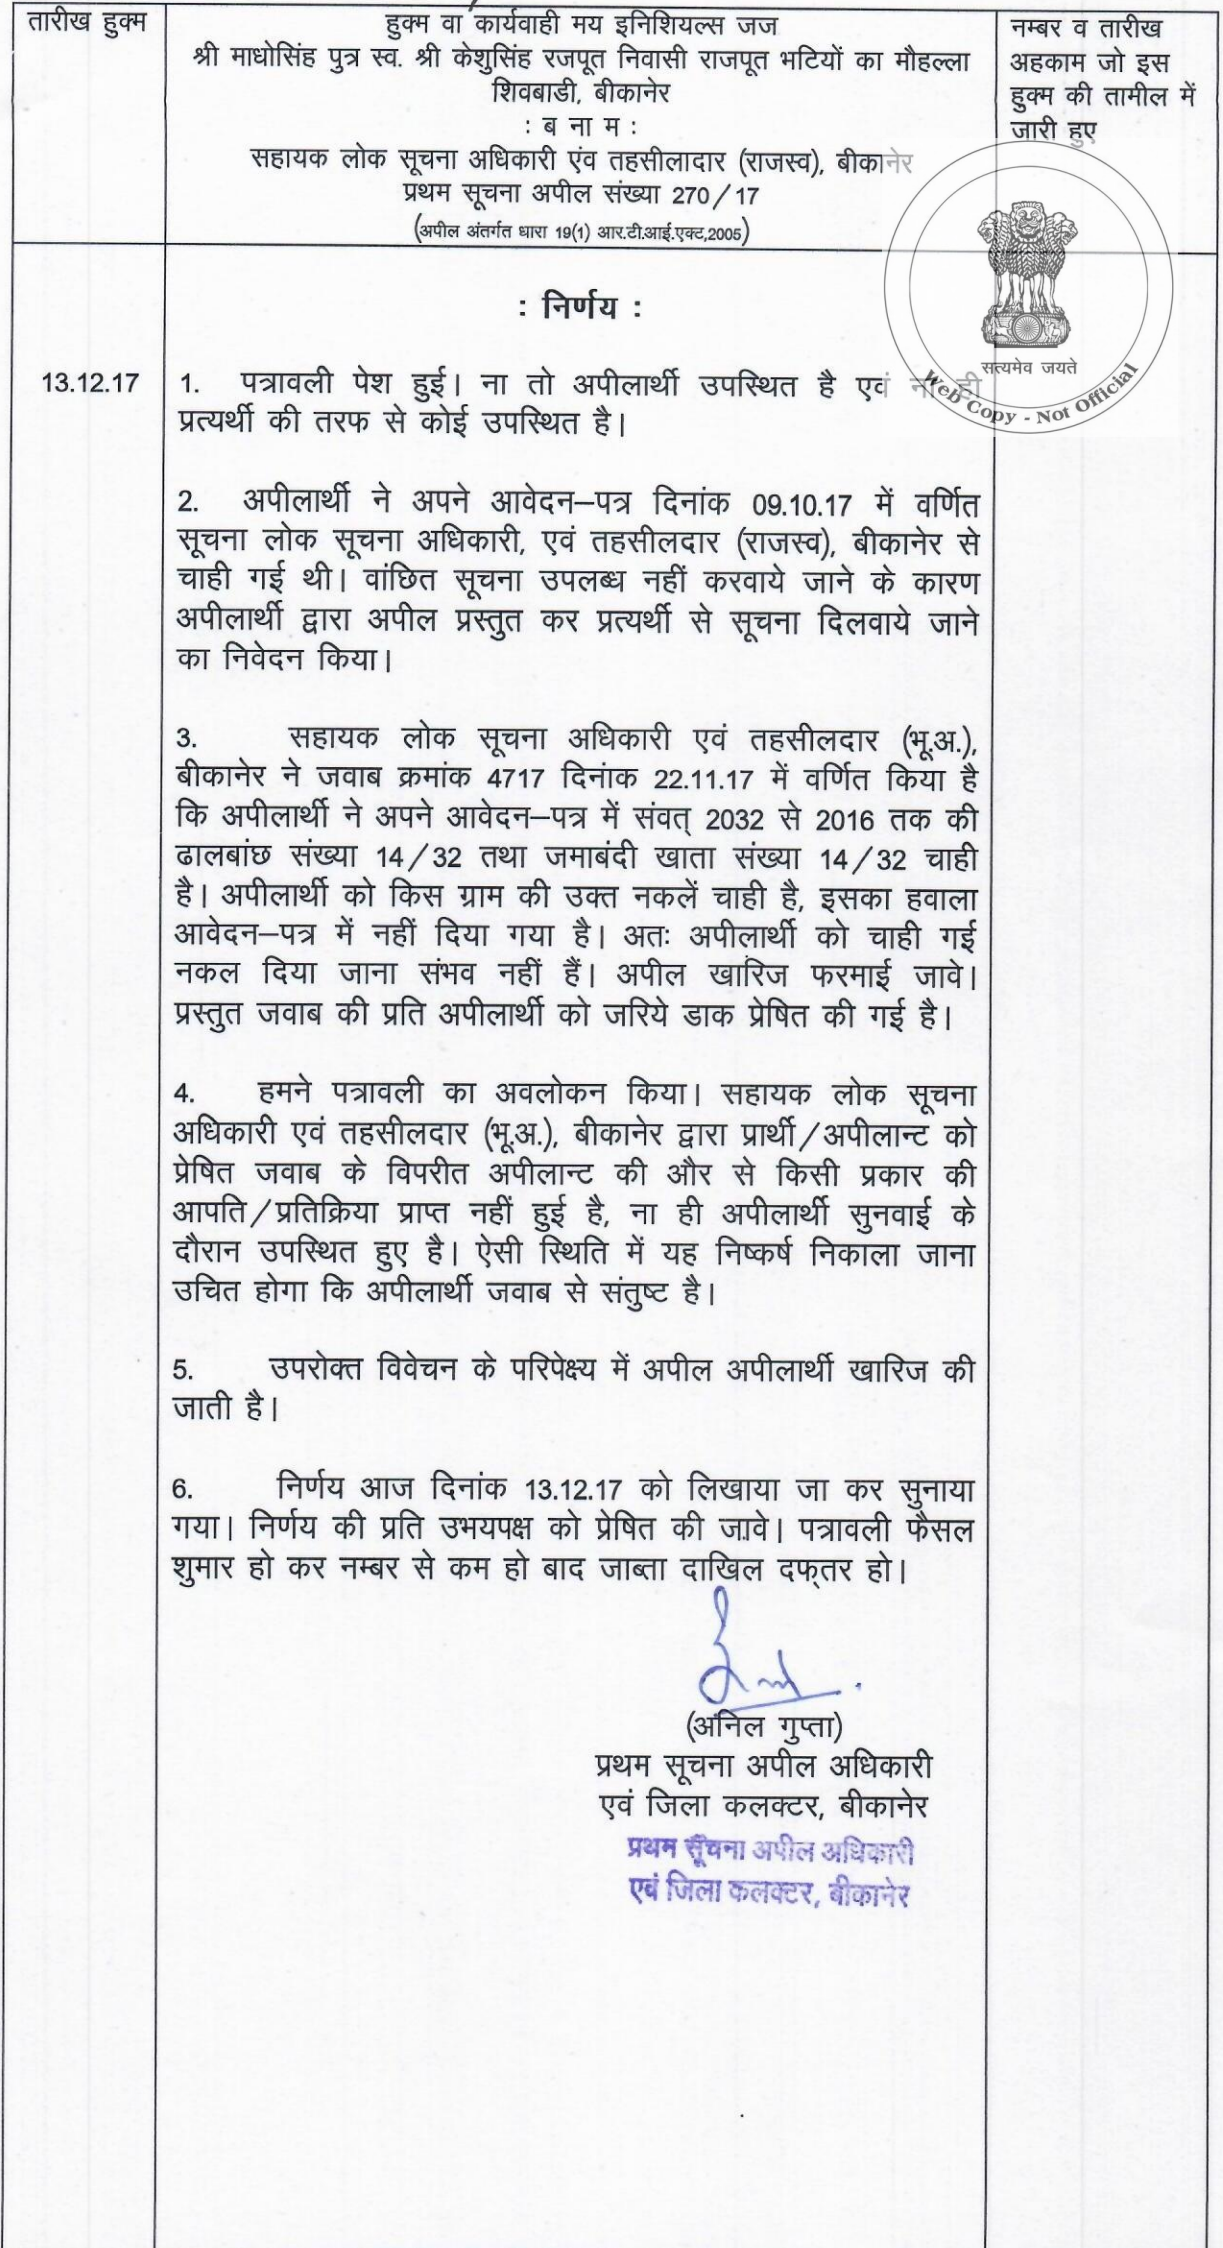 तारीख हुक्म
हुक्म वा कार्यवाही मय इनिशियल्स जज
श्री माधोसिंह पुत्र स्व. श्री केशुसिंह रजपूत निवासी राजपूत भटियों का मौहल्ला
शिवबाडी, बीकानेर
: ब ना म :
सहायक लोक सूचना अधिकारी एंव तहसीलादार (राजस्व), बीकानेर
प्रथम सूचना अपील संख्या 270/17
(अपील अंतर्गत धारा 19(1) आर.टी.आई.एक्ट,2005)
नम्बर व तारीख
अहकाम जो इस
हुक्म की तामील में
जारी हुए
सत्यमेव जयते
Web Copy - Not Official
: निर्णय :
13.12.17
1. पत्रावली पेश हुई। ना तो अपीलार्थी उपस्थित है एवं ना ही
प्रत्यर्थी की तरफ से कोई उपस्थित है।
2. अपीलार्थी ने अपने आवेदन–पत्र दिनांक 09.10.17 में वर्णित
सूचना लोक सूचना अधिकारी, एवं तहसीलदार (राजस्व), बीकानेर से
चाही गई थी। वांछित सूचना उपलब्ध नहीं करवाये जाने के कारण
अपीलार्थी द्वारा अपील प्रस्तुत कर प्रत्यर्थी से सूचना दिलवाये जाने
का निवेदन किया।
3. सहायक लोक सूचना अधिकारी एवं तहसीलदार (भू.अ.),
बीकानेर ने जवाब क्रमांक 4717 दिनांक 22.11.17 में वर्णित किया है
कि अपीलार्थी ने अपने आवेदन–पत्र में संवत् 2032 से 2016 तक की
ढालबांछ संख्या 14/32 तथा जमाबंदी खाता संख्या 14/32 चाही
है। अपीलार्थी को किस ग्राम की उक्त नकलें चाही है, इसका हवाला
आवेदन–पत्र में नहीं दिया गया है। अतः अपीलार्थी को चाही गई
नकल दिया जाना संभव नहीं हैं। अपील खारिज फरमाई जावे।
प्रस्तुत जवाब की प्रति अपीलार्थी को जरिये डाक प्रेषित की गई है।
4. हमने पत्रावली का अवलोकन किया। सहायक लोक सूचना
अधिकारी एवं तहसीलदार (भू.अ.), बीकानेर द्वारा प्रार्थी/अपीलान्ट को
प्रेषित जवाब के विपरीत अपीलान्ट की और से किसी प्रकार की
आपति/प्रतिक्रिया प्राप्त नहीं हुई है, ना ही अपीलार्थी सुनवाई के
दौरान उपस्थित हुए है। ऐसी स्थिति में यह निष्कर्ष निकाला जाना
उचित होगा कि अपीलार्थी जवाब से संतुष्ट है।
5. उपरोक्त विवेचन के परिपेक्ष्य में अपील अपीलार्थी खारिज की
जाती है।
6. निर्णय आज दिनांक 13.12.17 को लिखाया जा कर सुनाया
गया। निर्णय की प्रति उभयपक्ष को प्रेषित की जावे। पत्रावली फैसल
शुमार हो कर नम्बर से कम हो बाद जाब्ता दाखिल दफ्तर हो।
(अनिल गुप्ता)
प्रथम सूचना अपील अधिकारी
एवं जिला कलक्टर, बीकानेर
प्रथम सूचना अपील अधिकारी
एवं जिला कलक्टर, बीकानेर